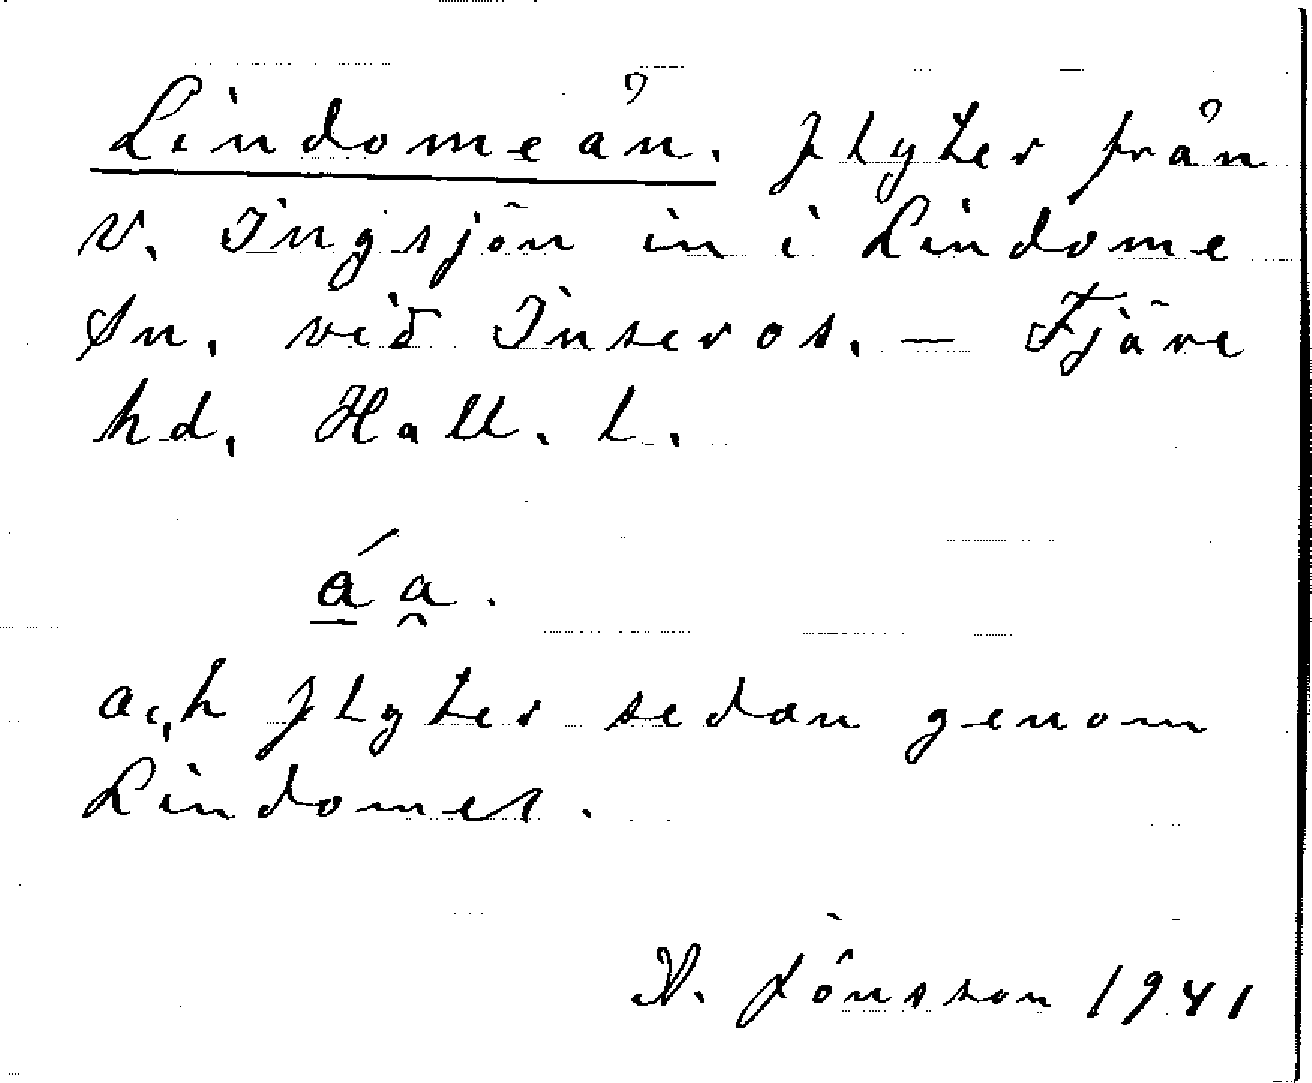 Lindomeån. flyter från
V. Ingsjön in i Lindome
Sn. vid Inseros. — Fjäre
hd, Hall. L.
áa̯.
och flyter sedan genom
Lindomes.
V. Jönsson 1941